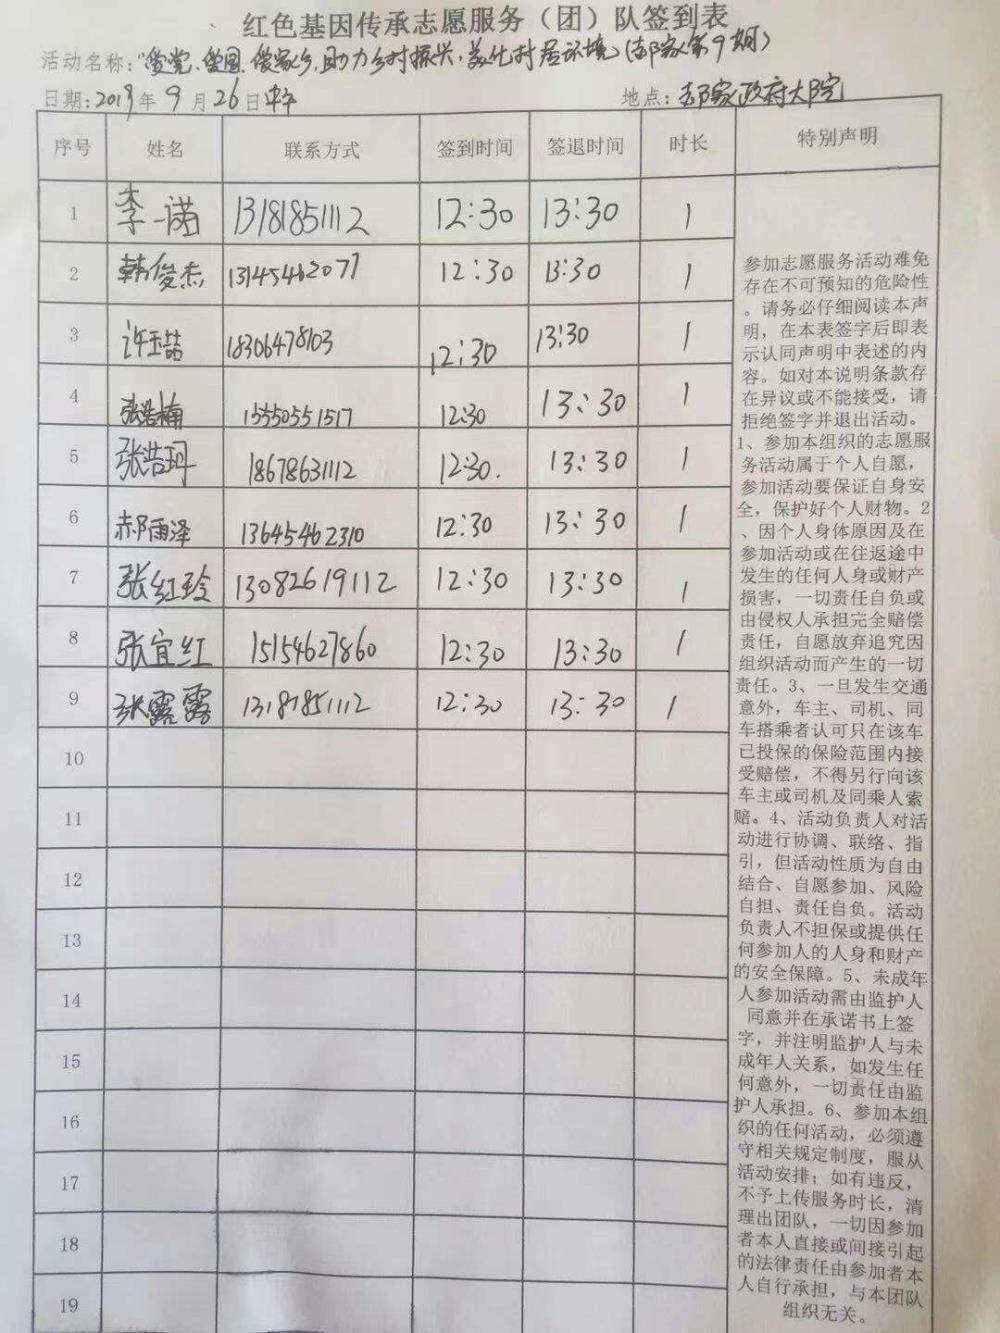 红色基因传承志愿服务（团）队签到表
活动名称：“爱党、爱国、爱家乡，助力乡村振兴，美化村居环境”（郝家第9期）
日期：2019年9月26日中午 地点：郝家政府大院
序号 姓名 联系方式 签到时间 签退时间 时长 特别声明
1 李一诺 13181851112 12:30 13:30 1
2 韩俊杰 13145462077 12:30 13:30 1
3 许玉喆 18306478103 12:30 13:30 1
4 张浩楠 15550551517 12:30 13:30 1
5 张浩珂 18678631112 12:30. 13:30 1
6 郝雨泽 13645462310 12:30 13:30 1
7 张红玲 13082619112 12:30 13:30 1
8 张宜红 15154627860 12:30 13:30 1
9 张露露 13181851112 12:30 13:30 1
10
11
12
13
14
15
16
17
18
19
参加志愿服务活动难免
存在不可预知的危险性
。请务必仔细阅读本声
明，在本表签字后即表
示认同声明中表述的内
容。如对本说明条款存
在异议或不能接受，请
拒绝签字并退出活动。
1、参加本组织的志愿服
务活动属于个人自愿，
参加活动要保证自身安
全，保护好个人财物。2
、因个人身体原因及在
参加活动或在往返途中
发生的任何人身或财产
损害，一切责任自负或
由侵权人承担完全赔偿
责任，自愿放弃追究因
组织活动而产生的一切
责任。3、一旦发生交通
意外，车主、司机、同
车搭乘者认可只在该车
已投保的保险范围内接
受赔偿，不得另行向该
车主或司机及同乘人索
赔。4、活动负责人对活
动进行协调、联络、指
引，但活动性质为自由
结合、自愿参加、风险
自担、责任自负。活动
负责人不担保或提供任
何参加人的人身和财产
的安全保障。5、未成年
人参加活动需由监护人
同意并在承诺书上签
字，并注明监护人与未
成年人关系，如发生任
何意外，一切责任由监
护人承担。6、参加本组
织的任何活动，必须遵
守相关规定制度，服从
活动安排；如有违反，
不予上传服务时长，清
理出团队，一切因参加
者本人直接或间接引起
的法律责任由参加者本
人自行承担，与本团队
组织无关。